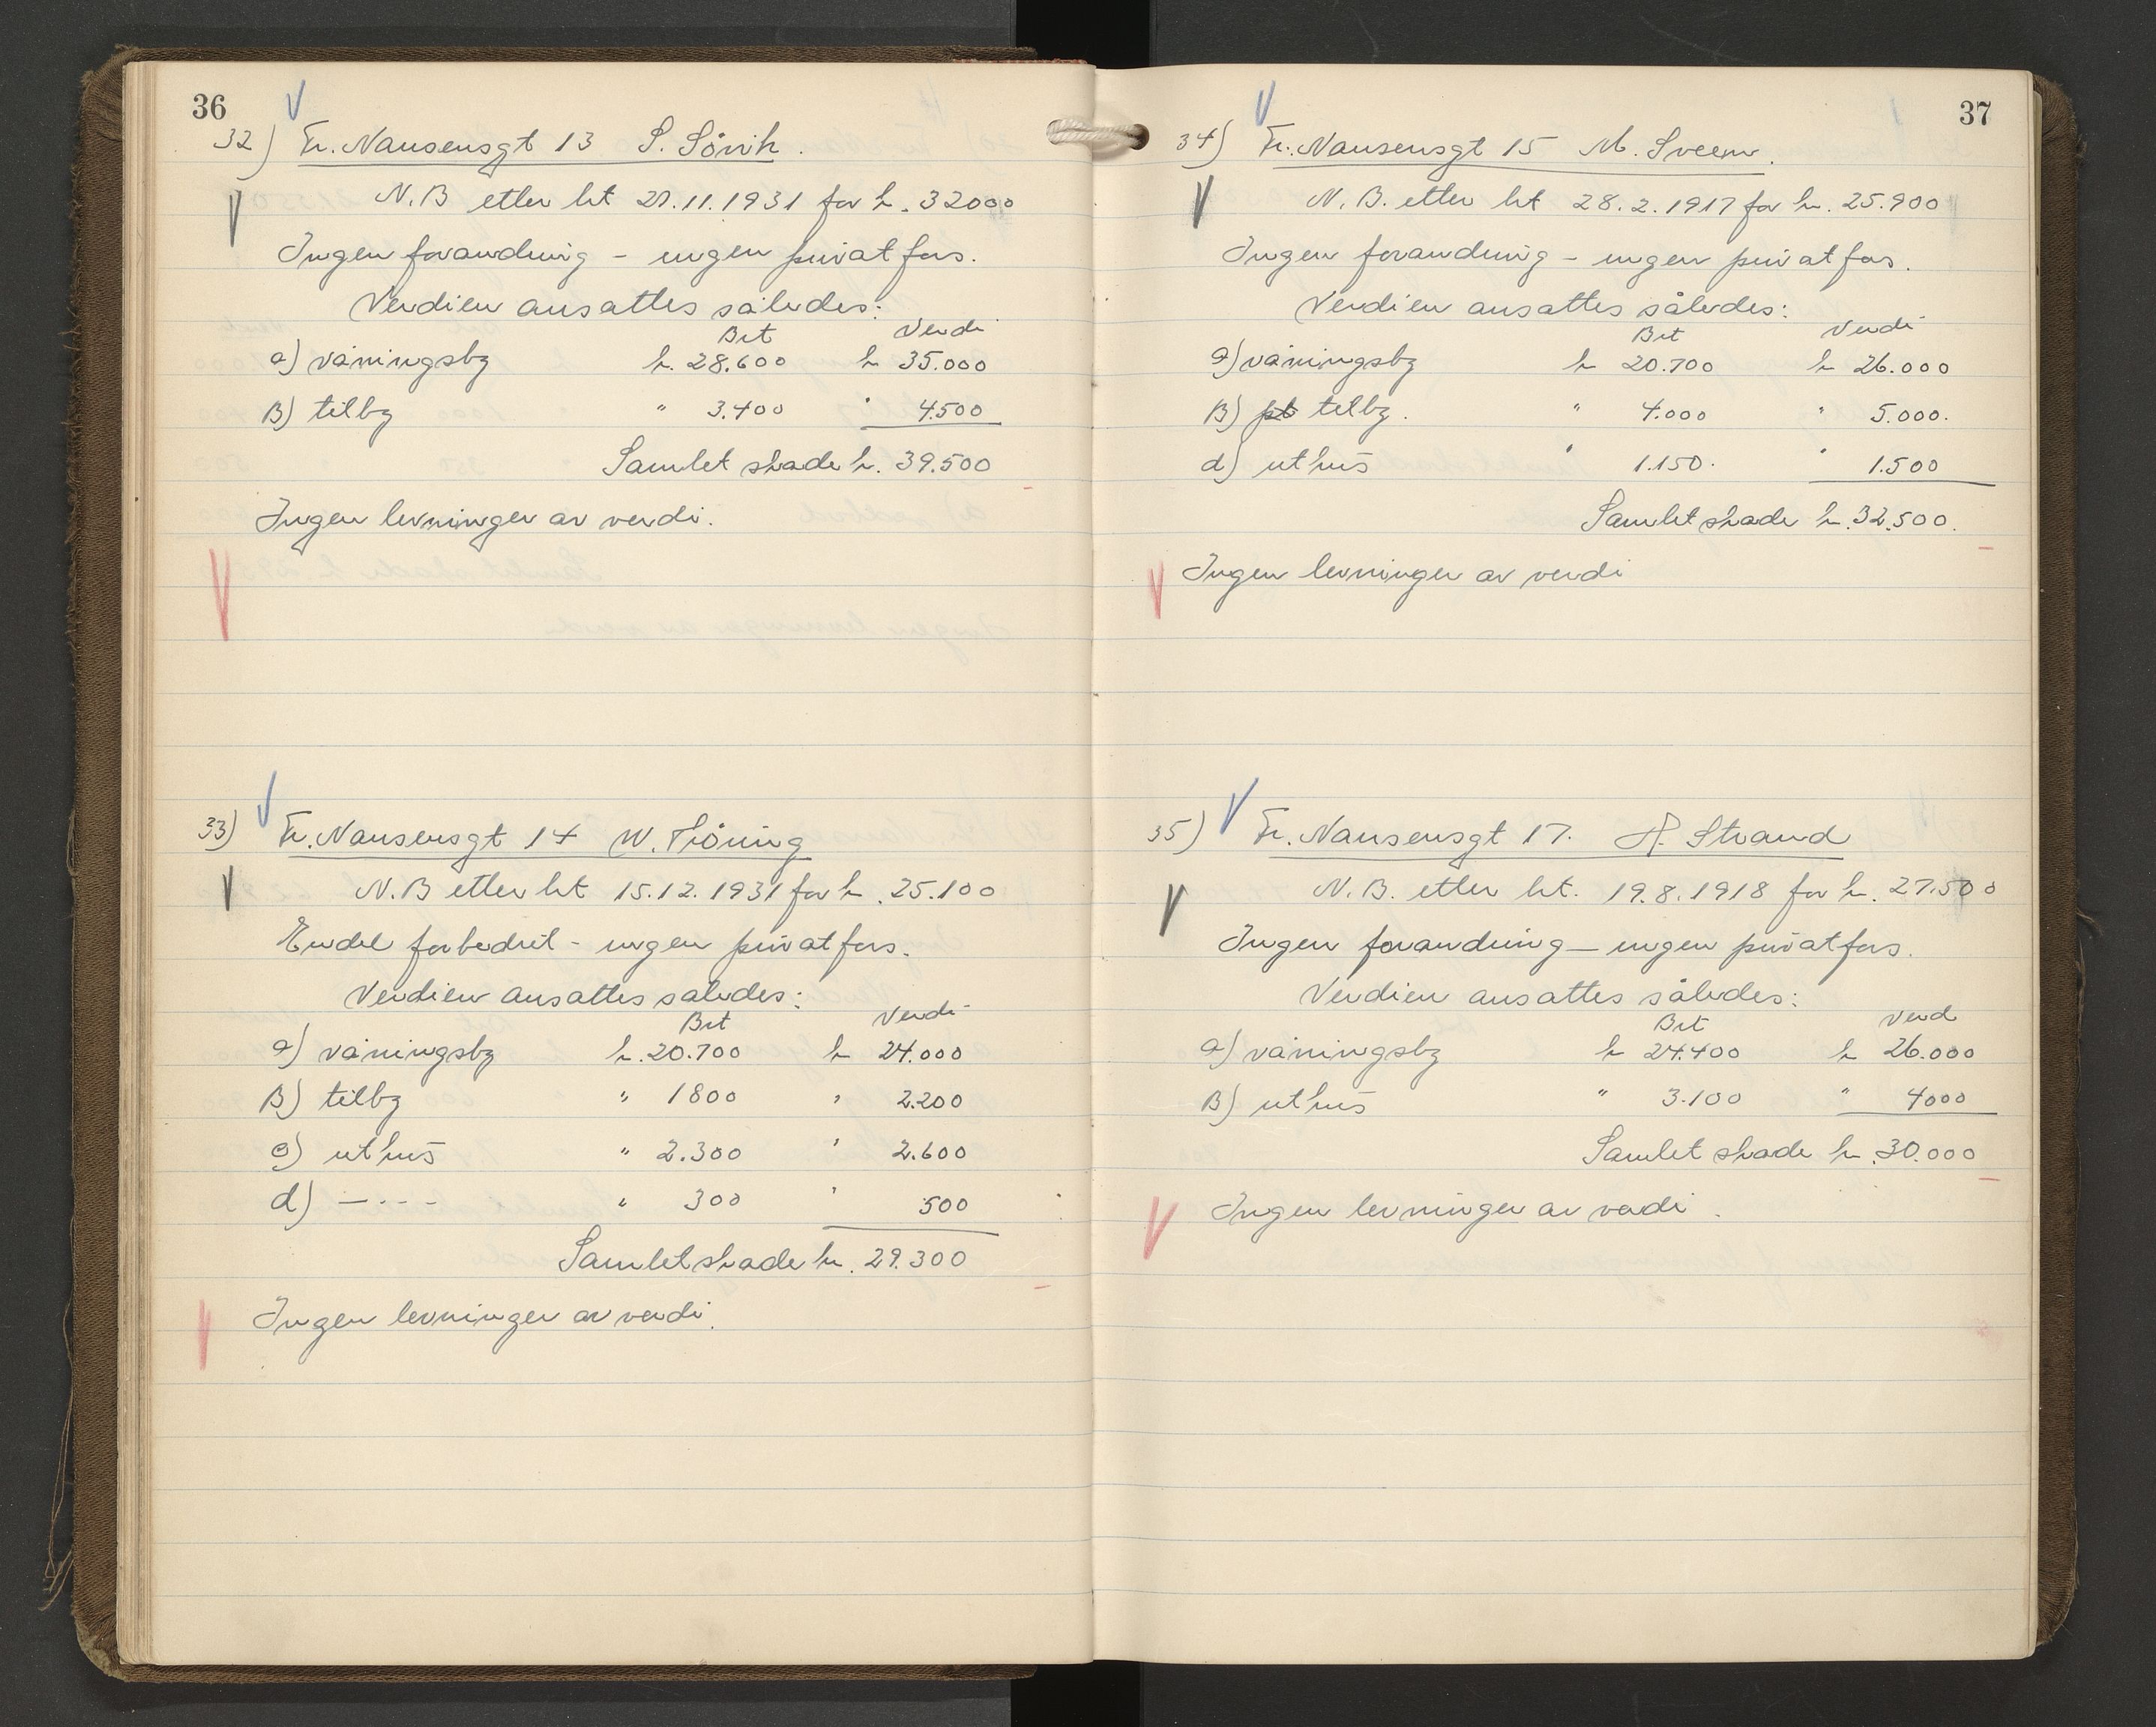 36
32) Fr. Nansensgt 13 S. Sövik.
N.B etter bt 20.11.1931 for kr. 32000
Ingen forandring - ingen privat fors.
Verdien ansattes således:
Brt Verdi
a) våningsbg kr. 28.600 kr 35.000
B) tilbg " 3.400 " 4.500
Samlet skade kr. 39.500
Ingen levninger av verdi.
33) Fr. Nansensgt 14 W. Thöring
N.B etter bt 15.12.1931 for kr. 25.100
Endel forbedret - ingen privat fors.
Verdien ansattes således:
Brt Verdi
a) våningsbg kr. 20.700 kr 24.000
B) tilbg " 1800 " 2.200
c) uthus " 2.300 " 2.600
d) — - - - " 300 " 500
Samlet skade kr. 29.300
Ingen levninger av verdi.
37
34) Fr. Nansensgt 15 M. Sveem.
N.B. etter bt 28.2.1917 for kr. 25.900
Ingen forandring - ingen privat fors.
Verdien ansattes således:
Brt Verdi
a) våningsbg kr 20.700 kr 26.000
B) tilbg. " 4.000 " 5.000.
d) uthus " 1.150. " 1.500
Samlet skade kr. 32.500.
Ingen levninger av verdi
35) Fr. Nansensgt 17. A. Strand
N.B. etter bt. 19.8.1918 for kr. 27.500
Ingen forandring — ingen privat fors.
Verdien ansattes således:
Brt Verd
a) våningsbg kr 24.400 kr 26.000
B) uthus " 3.100 " 4000
Samlet skade kr. 30.000
Ingen levninger av verdi.